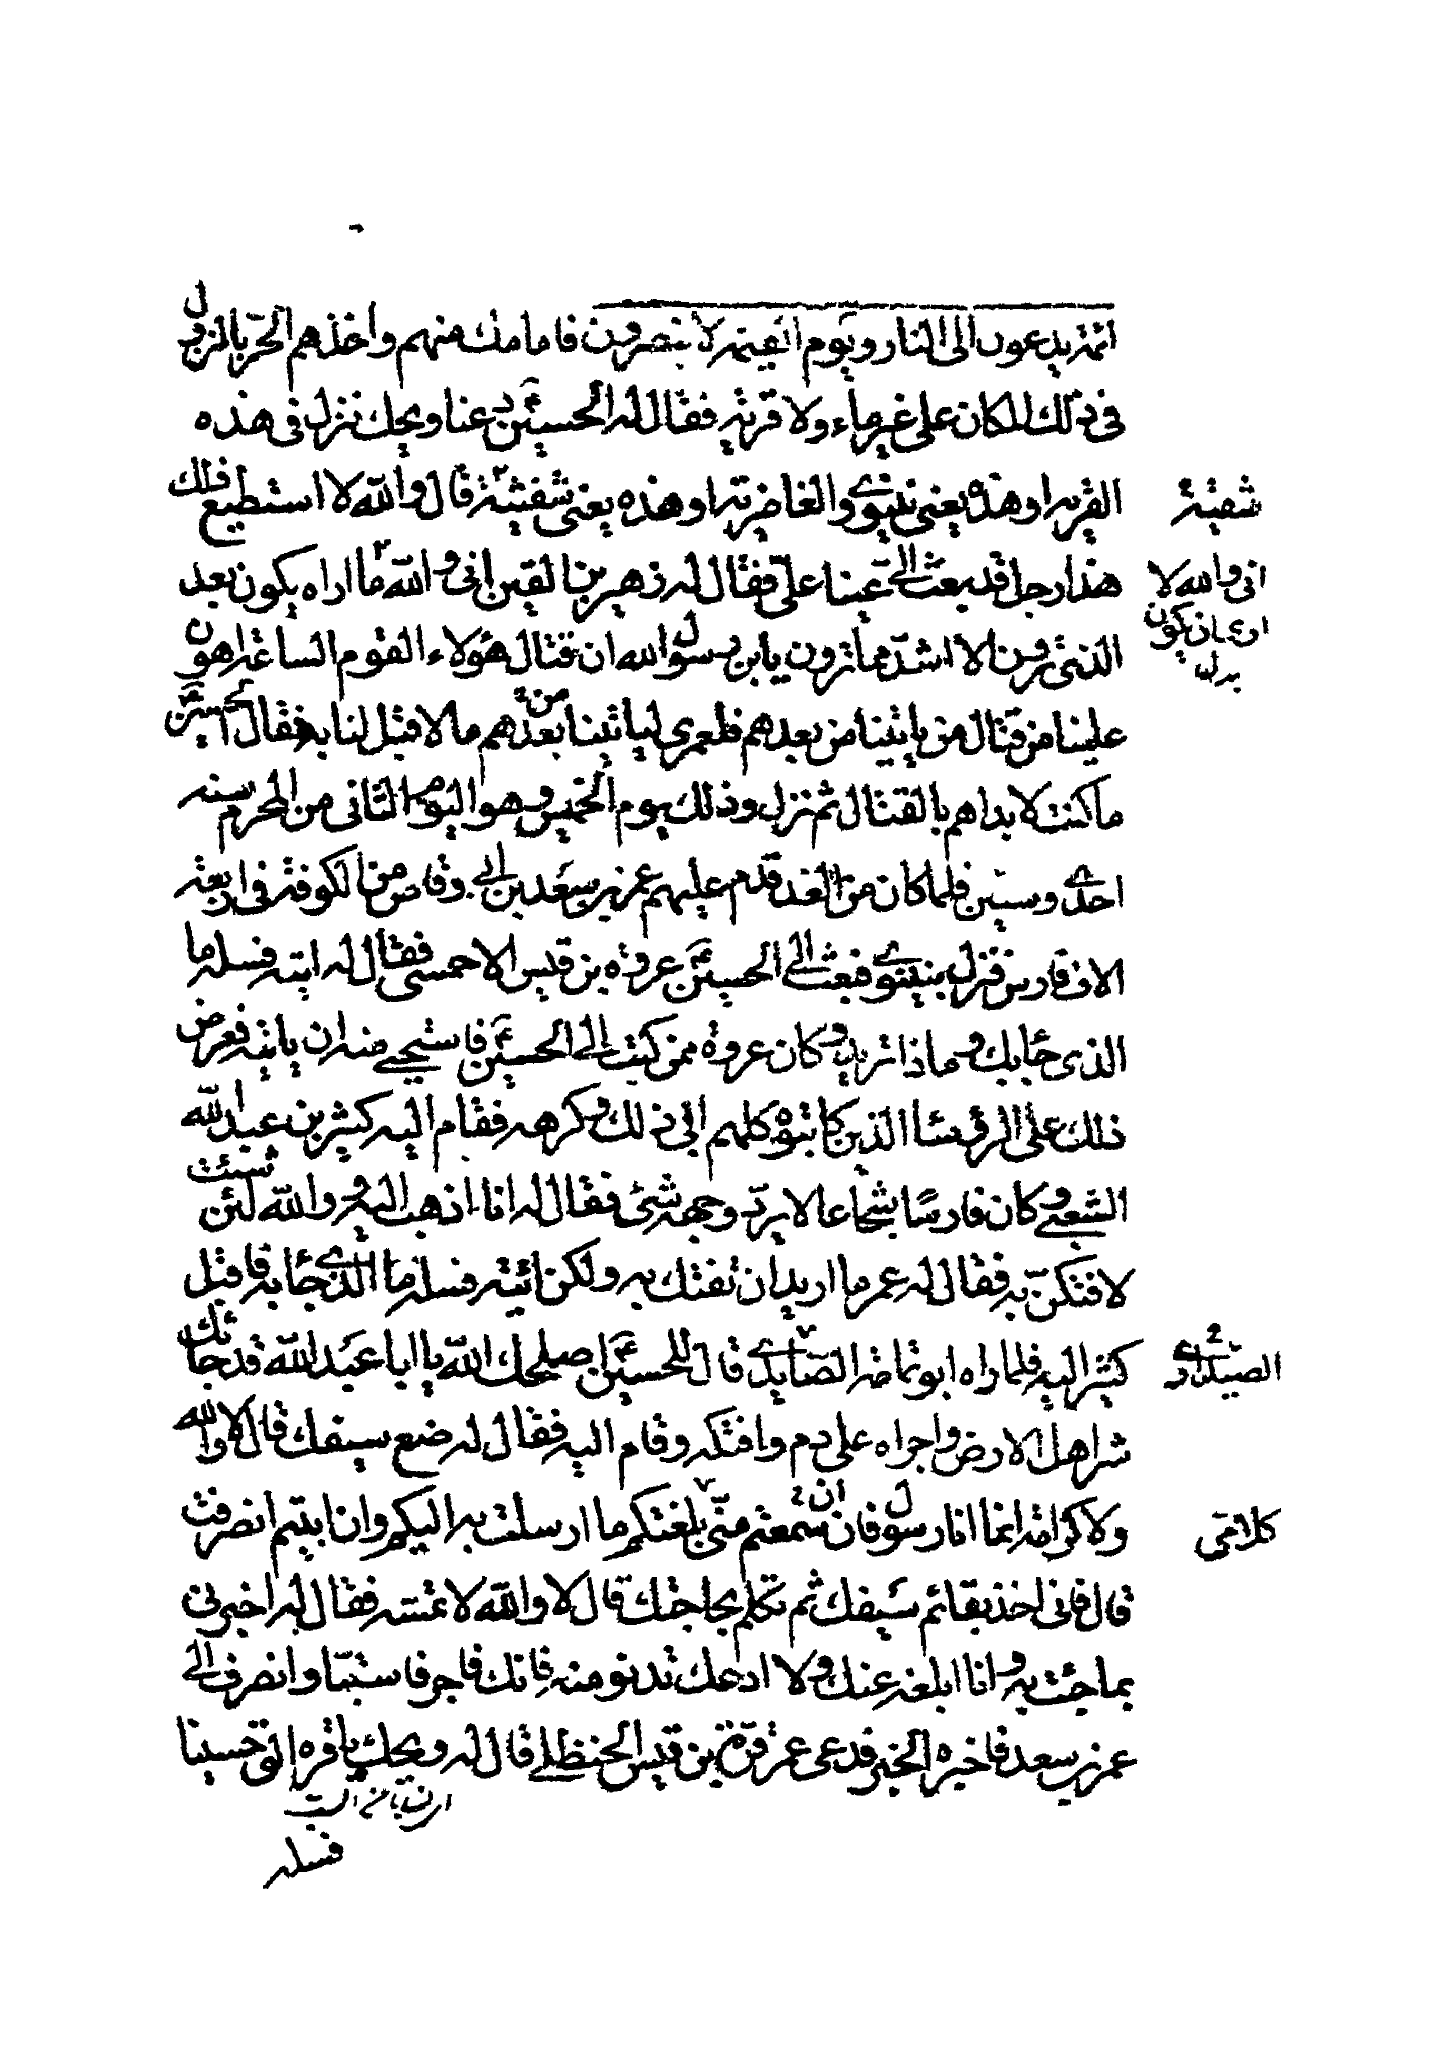 ائمة يدعون الى النار ويوم القيمة لا ينصرون فامامك منهم واخذهم الحرّ بالنزول
فى ذلك المكان على غير ماء ولا قرية فقال له الحسين ع دعنا ويحك ننزل فى هذه
القرية او هذه يعنى نينوى والغاضرية او هذه يعنى شفيثة قال والله لا استطيع ذلك
شفية
هذا رجل قد بعث الىّ عينا علىّ فقال له زهير بن القين انى والله ما اراه يكون بعد
انى والله لا
ارى ان يكون
الذى ترون الا اشدّ مما ترون يابن رسول الله ان قتال هؤلاء القوم الساعة اهون
علينا من قتال من ياتينا من بعدهم فلعمرى لياتينا من بعدهم ما لا قبل لنا به فقال الحسين ع
ما كنت لابداهم بالقتال ثم نزل وذلك يوم الخميس وهو اليوم الثانى من المحرم سنه
احدى وستين فلما كان من الغد قدم عليهم عمر بن سعد بن ابى وقاص من الكوفة فى اربعة
الاف فارس فنزل بنينوى فبعث الى الحسين ع عروة بن قيس الاحمسى فقال له ايته فسله ما
الذى جابك وماذا تريد وكان عروة ممن كتب الى الحسين ع فاستحيى منه ان ياتيه فعرض
ذلك على الرؤسا الذين كاتبوه كلهم ابى ذلك وكرهه فقام اليه كثير بن عبد الله
الشعبى وكان فارسًا شجاعا لا يردّ وجهه شئ فقال له انا اذهب اليه ووالله لئن شئت
لافتكنّ به فقال له عمر ما اريد ان تفتك به ولكن ائته فسله ما الذى جابه فاقبل
كثير اليه فلما راه ابو ثمامة الصّايدى قال للحسين ع اصلحك الله يا ابا عبد الله قد جائك
الصيداوى
شر اهل الارض واجراه على دم وافتكه وقام اليه فقال له ضع سيفك قال لا والله
ولا كرامة انما انا رسول فان سمعتم منّى بلغتكم ما ارسلت به اليكم وان ابيتم انصرفت
كلامى
قال فانى اخذ بقائم سيفك ثم تكلم بحاجتك قال لا والله لا تمسّه فقال له اخبرنى
بما جئت به وانا ابلغه عنك ولا ادعك تدنو منه فانك فاجر فاستبّا وانصرف الى
عمر بن سعد فاخبره الخبر فدعى عمر قرّة بن قيس الحنظلى فقال له ويحك يا قره الق حسينا
فسله